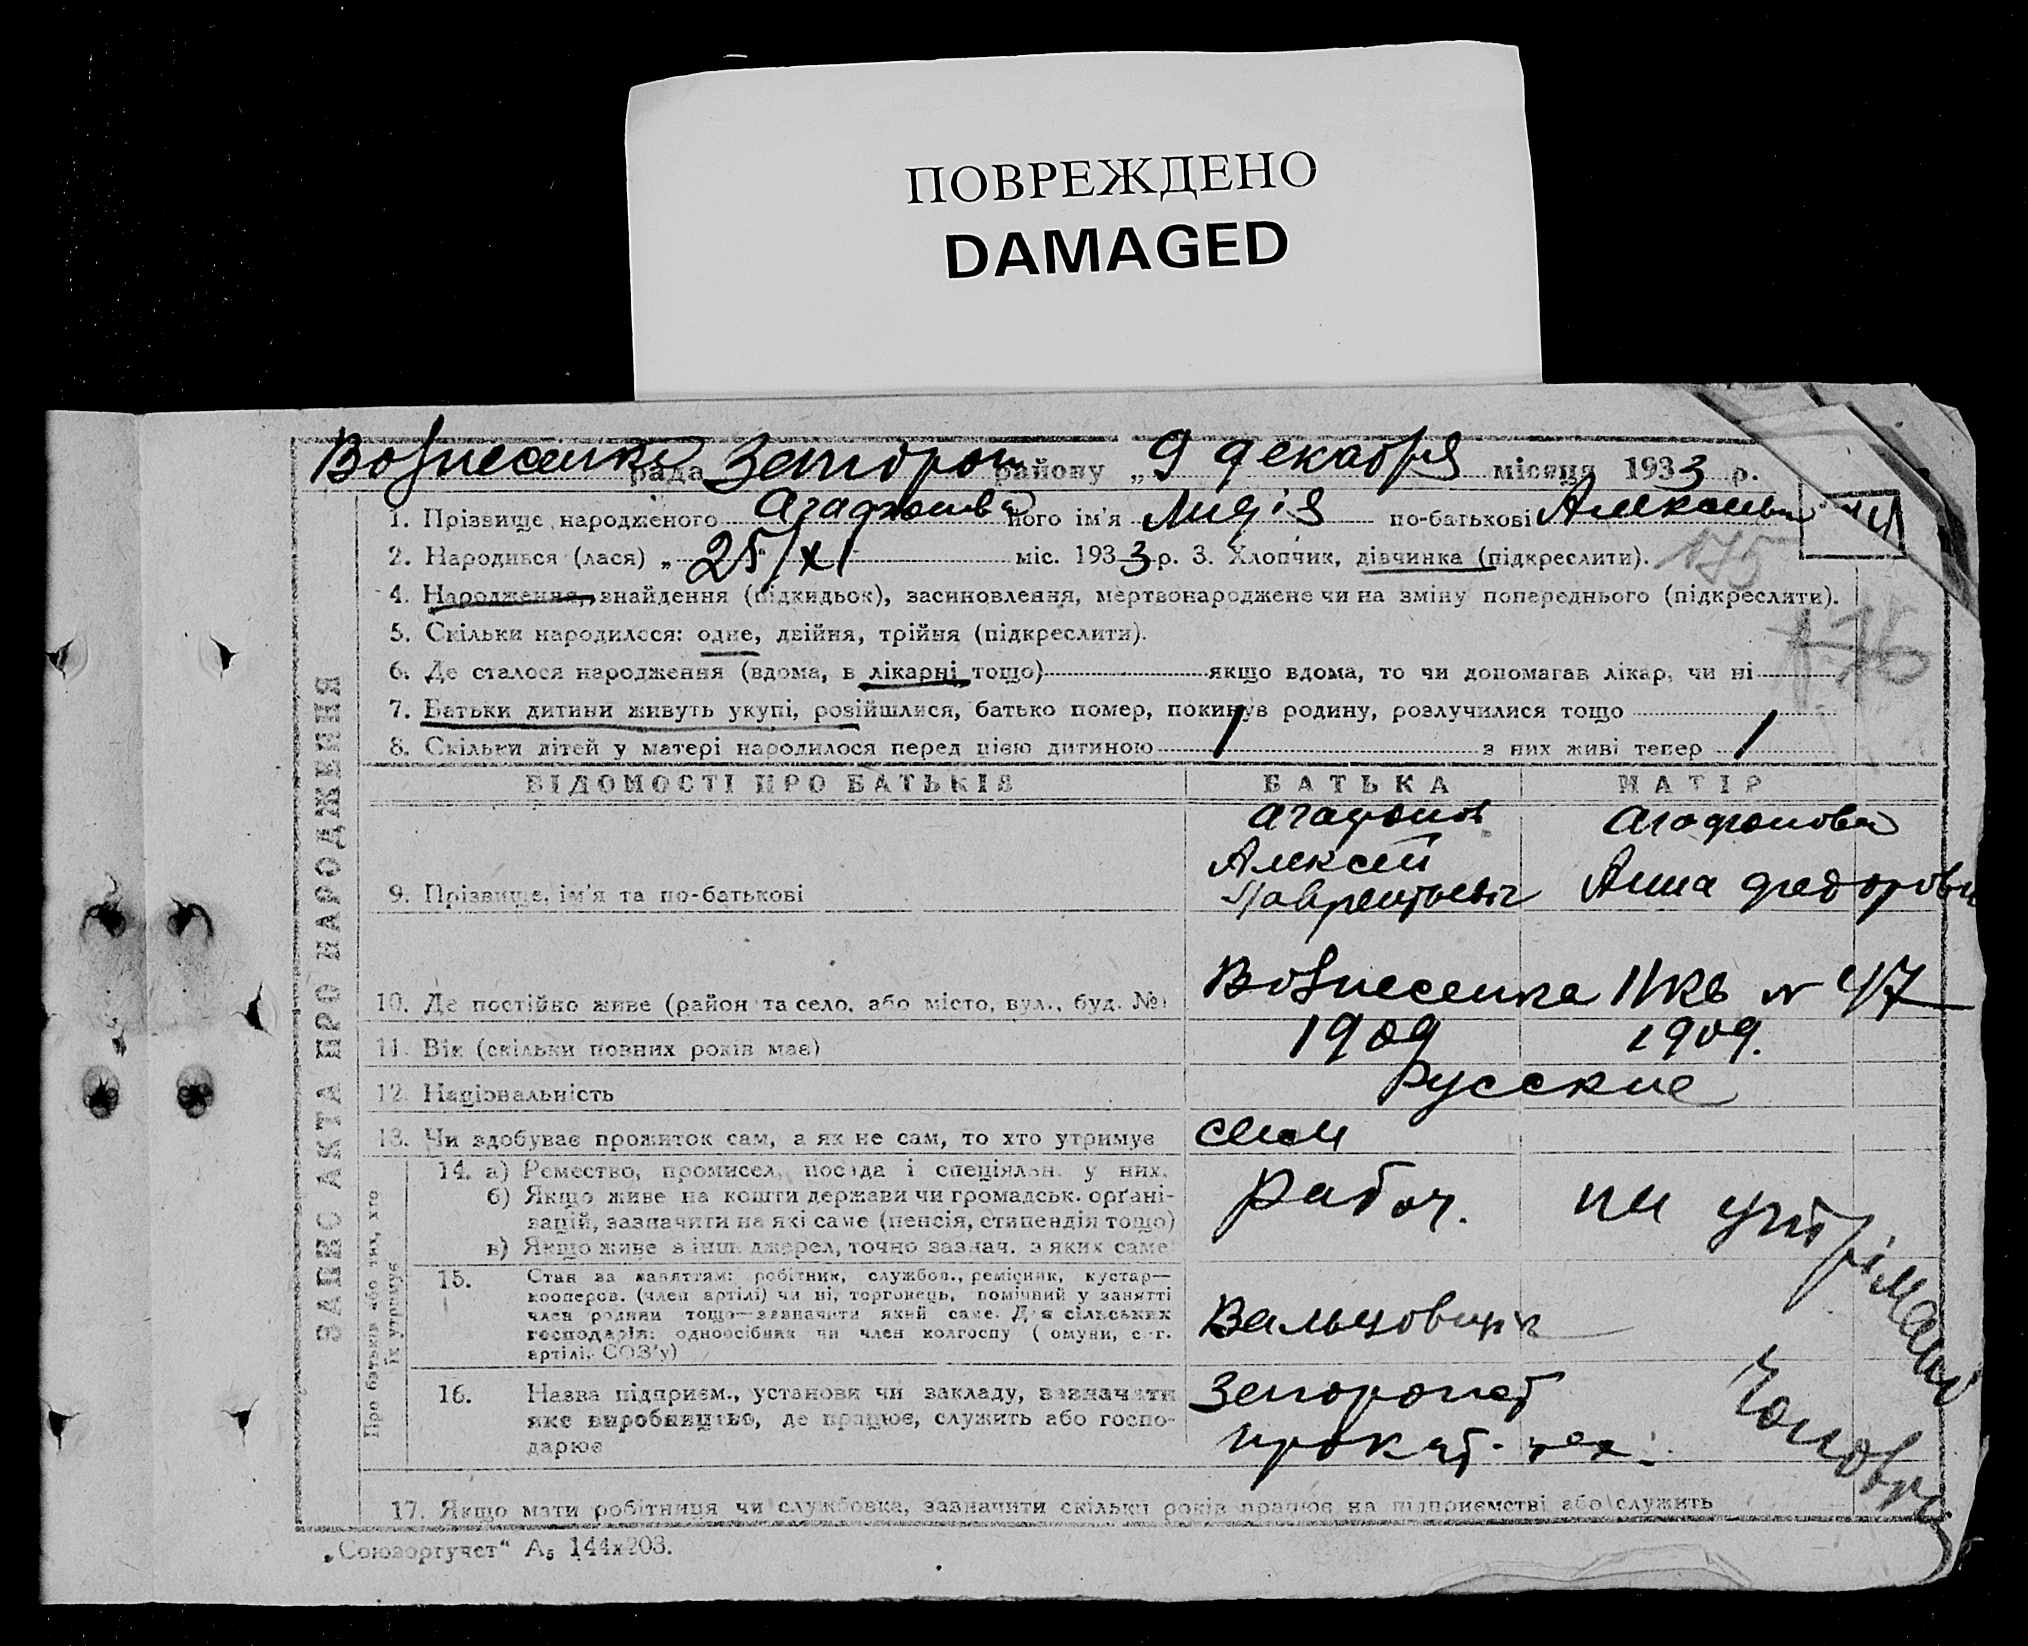 ПОВРЕЖДЕНО
DAMAGED
Вознесенка рада Запорож району „ 9 декабря місяця 1933 р.
1. Прізвище народженого Агафонова його ім'я Лидія по-батькові Алексеевн
2. Народився (лася) „ 25/XI міс. 1933 р. 3. Хлопчик, дівчинка (підкреслити).
175
4. Народження, знайдення (підкидьок), засиновлення, мертвонароджене чи на зміну попереднього (підкреслити).
5. Скільки народилося: одне, двійня, трійня (підкреслити).
176
6. Де сталося народження (вдома, в лікарні тощо) якщо вдома, то чи допомагав лікар, чи ні
7. Батьки дитини живуть укупі, розійшлися, батько помер, покинув родину, розлучилися тощо
8. Скільки дітей у матері народилося перед цією дитиною 1 з них живі тепер 1
ЗАПИС АКТА ПРО НАРОДЖЕННЯ
ВІДОМОСТІ ПРО БАТЬКІВ БАТЬКА МАТІР
9. Прізвище, ім'я та по-батькові
Агафонов
Алексей
Лаврентьевіч
Агафонова
Анна Федоровн
10. Де постійно живе (район та село, або місто, вул., буд. №) Вознесенка 11 кв N 47
11. Вік (скільки повних років має) 1909 1909.
12. Національність Русские
13. Чи здобуває прожиток сам, а як не сам, то хто утримує сам
Про батьків або тих, хто
їх утримує
14. а) Ремество, промисел, посада і спеціяльн. у них.
б) Якщо живе на кошти держави чи громадськ. орґані-
зацій, зазначити на які саме (пенсія, стипендія тощо)
в) Якщо живе з інш. джерел, точно зазнач. з яких саме
Рабоч. на утрімані
15. Стан за заняттям: робітник, службов., ремісник, кустар—
кооперов. (член артілі) чи ні, торговець, помічний у занятті
член родини тощо—зазначити який саме. Для сільських
господарів: одноосібник чи член колгоспу (комуни, с.-г.
артілі, СОЗ'у)
Вальцовщик
16. Назва підприєм., установи чи закладу, зазначати
яке виробництво, де працює, служить або госпо-
дарює
прокат. цех.
17. Якщо мати робітниця чи службовка, зазначити скільки років працює на підприємстві або служить
„Союзоргучет" А₅ 144х203.